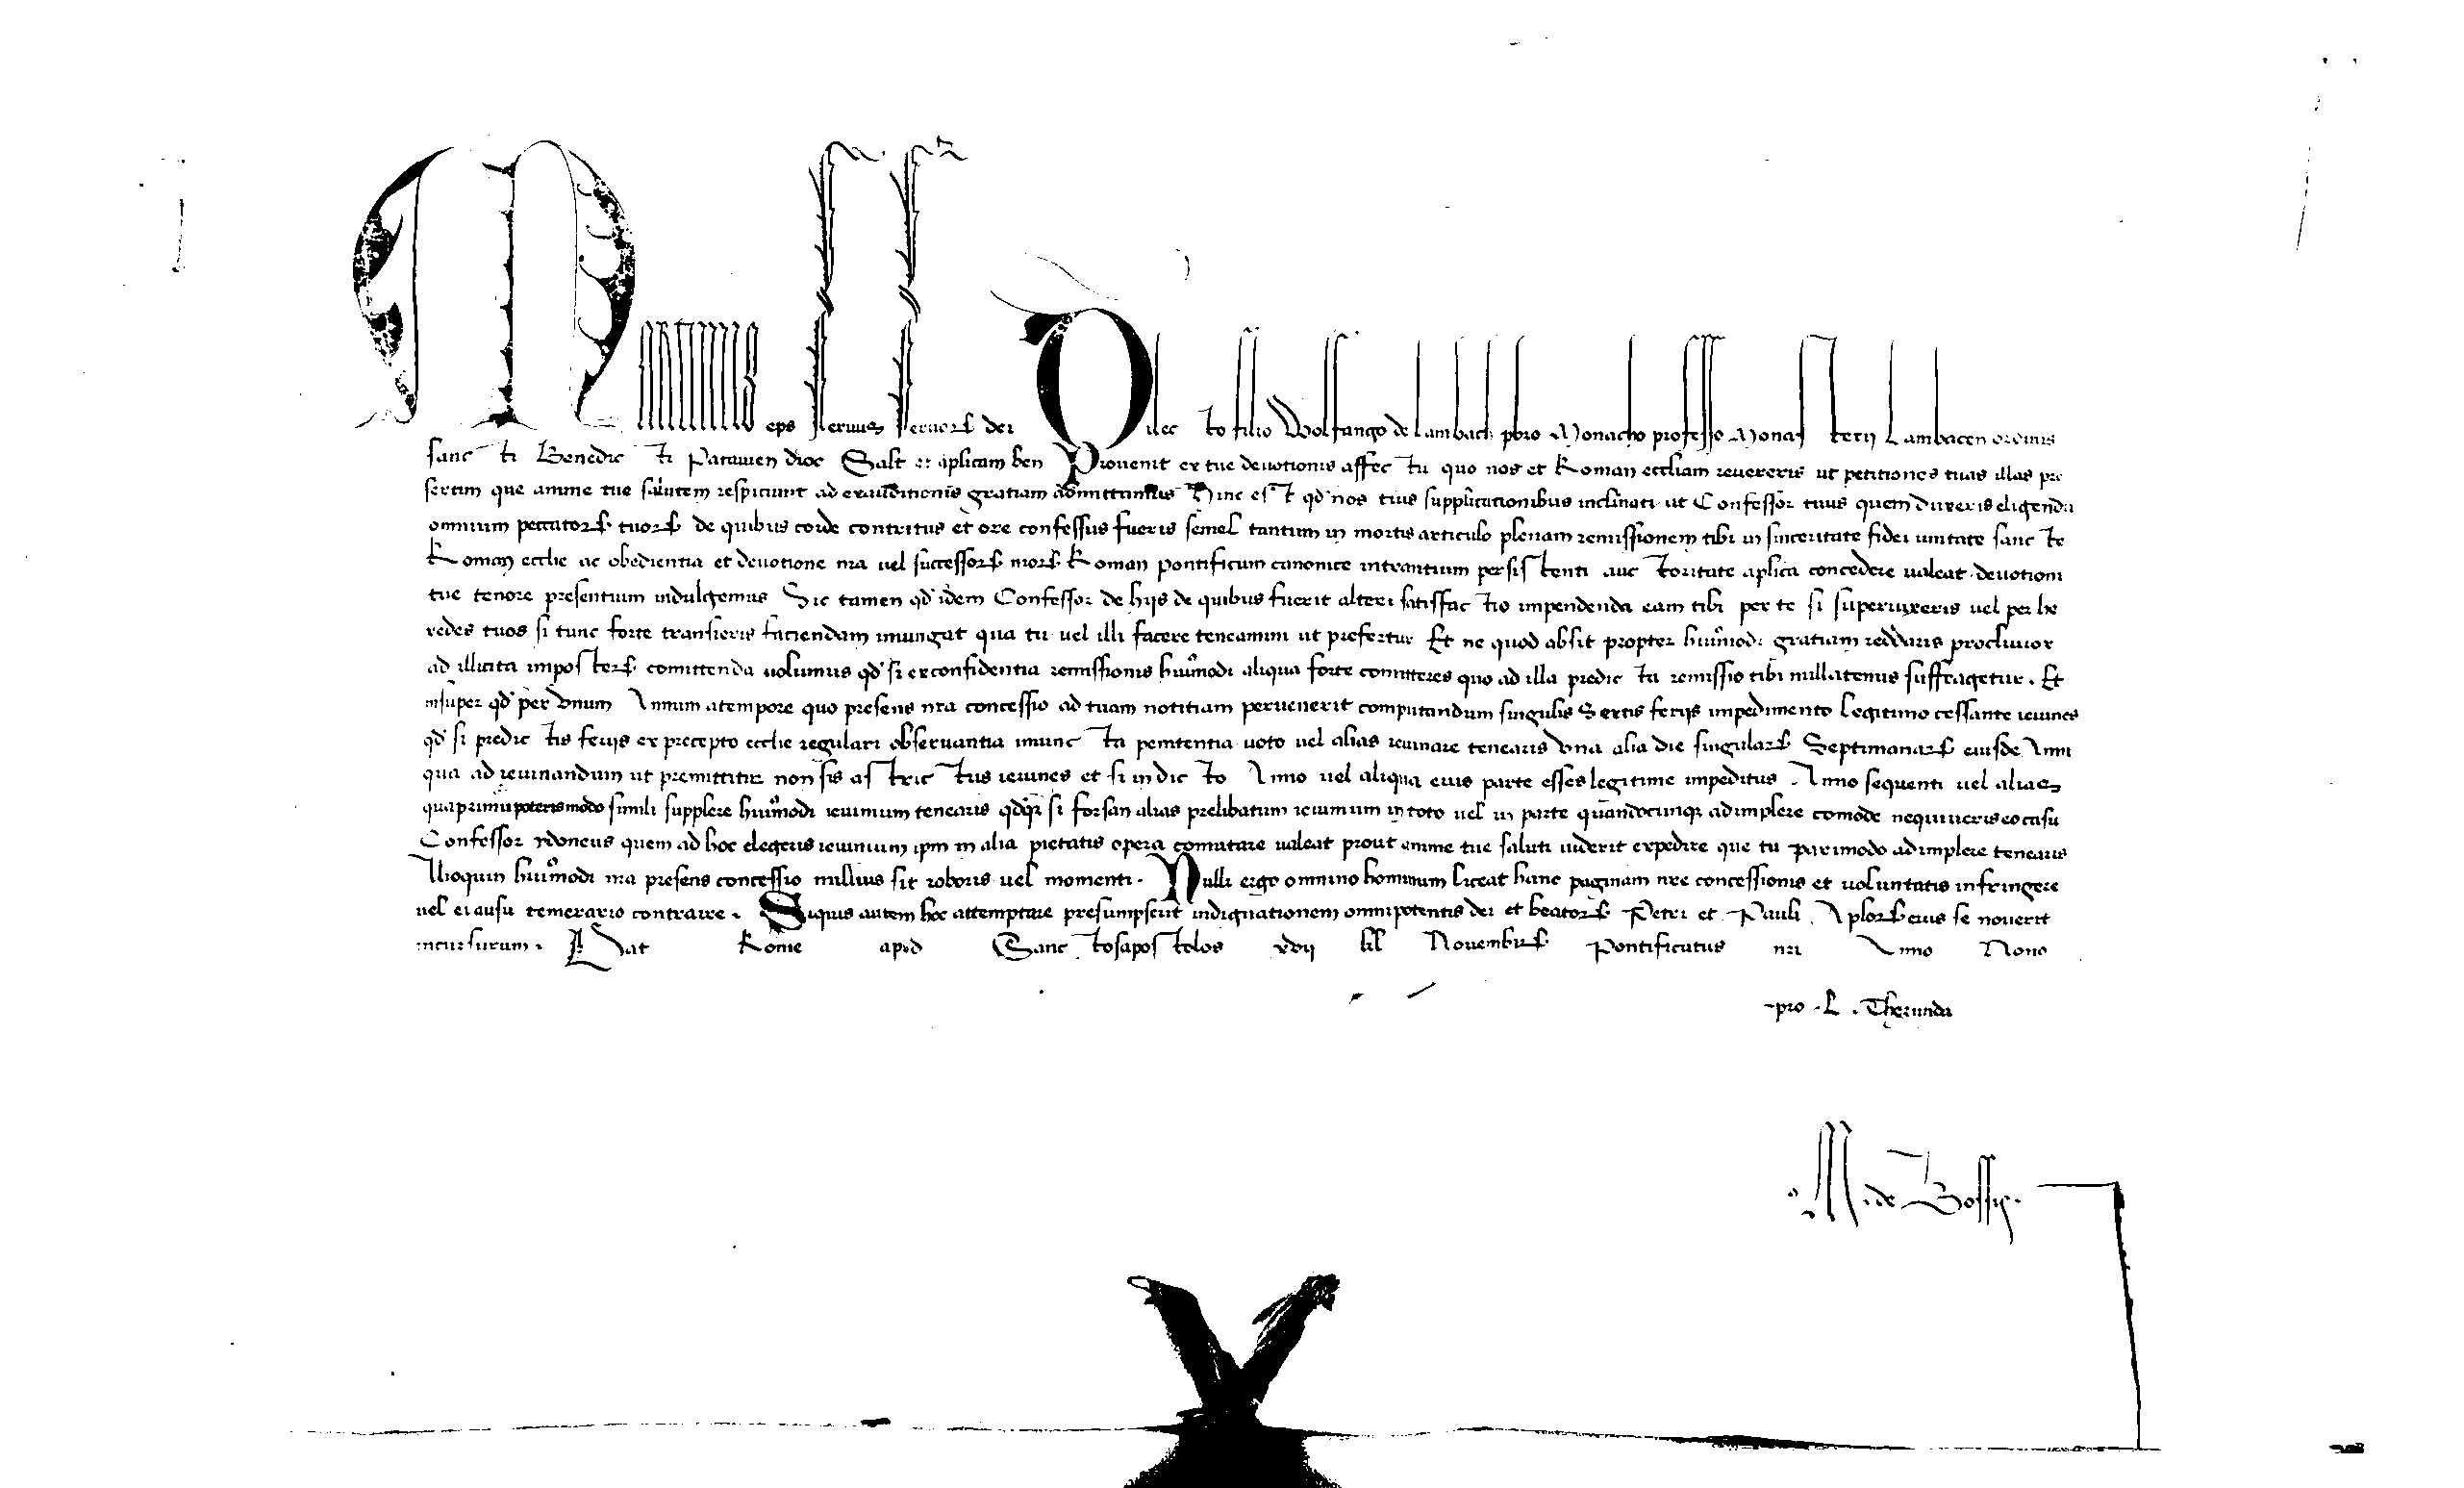 Martinus eps servus servor dei Dilecto filio Wolfango de Lambach pbro Monacho professo Monasterij Lambacen ordinis
sancti Benedicti Patavien dioc Salt et aplicam ben Provenit ex tue devotionis affectu quo nos et Roman eccliam revereris ut petitiones tuas illas pre
sertim que anime tue salutem respiciunt ad exauditionis gratiam admittamus Hinc est qd nos tuis supplicationibus inclinati ut Confessor tuus quem duxeris eligendu
omnium peccator tuor de quibus corde contritus et ore confessus fueris semel tantum in mortis articulo plenam remissionem tibi in sinceritate fidei unitate sancte
Roman ecclie ac obedientia et devotione nra vel successor nror Roman pontificum canonice intrantium persistenti auctoritate aplica concedere valeat devotioni
tue tenore presentium indulgemus Sic tamen qd idem Confessor de hijs de quibus fuerit alteri satisfactio impendenda eam tibi per te si supervixeris vel per he
redes tuos si tunc forte transieris faciendam iniungat qua tu vel illi facere teneamini ut prefertur Et ne quod absit propter huiusmodi gratiam reddaris proclivior
ad illicita imposter comittenda volumus qd si ex confidentia remissionis huiusmodi aliqua forte comitteres quo ad illa predicta remissio tibi nullatenus suffragetur. Et
insuper qd per unum Annum a tempore quo presens nra concessio ad tuam notitiam pervenerit computandum singulis Sextis ferijs impedimento legitimo cessante ieiunes
qd si predictis ferijs ex precepto ecclie regulari observantia iniuncta penitentia voto vel alias ieiunare tenearis una alia die singular Septimanar eiusde Anni
qua ad ieiunandum ut premittitur non sis astrictus ieiunes et si in dicto Anno vel aliqua eius parte esses legitime impeditus Anno sequenti vel alias
quaprimu poteris modo simili supplere huiusmodi ieiunium tenearis qdq si forsan alias prelibatum ieiunium in toto vel in parte quandocunq adimplere comode nequiveris eo casu
Confessor ydoneus quem ad hoc elegeris ieiunium ipm in alia pietatis opera comutare valeat prout anime tue saluti viderit expedire que tu pari modo adimplere tenearis
Alioquin huiusmodi nra presens concessio nullius sit roboris vel momenti. Nulli ergo omnino hominum liceat hanc paginam nre concessionis et voluntatis infringere
vel ei ausu temerario contraire. Siquis autem hoc attemptare presumpserit indignationem omnipotentis dei et beator Petri et Pauli Aplor eius se noverit
incursurum. Dat Rome apud Sanctosapostolos xvij kl Novembr Pontificatus nri Anno Nono
pro . L . Therunda
. M . de Bossis .